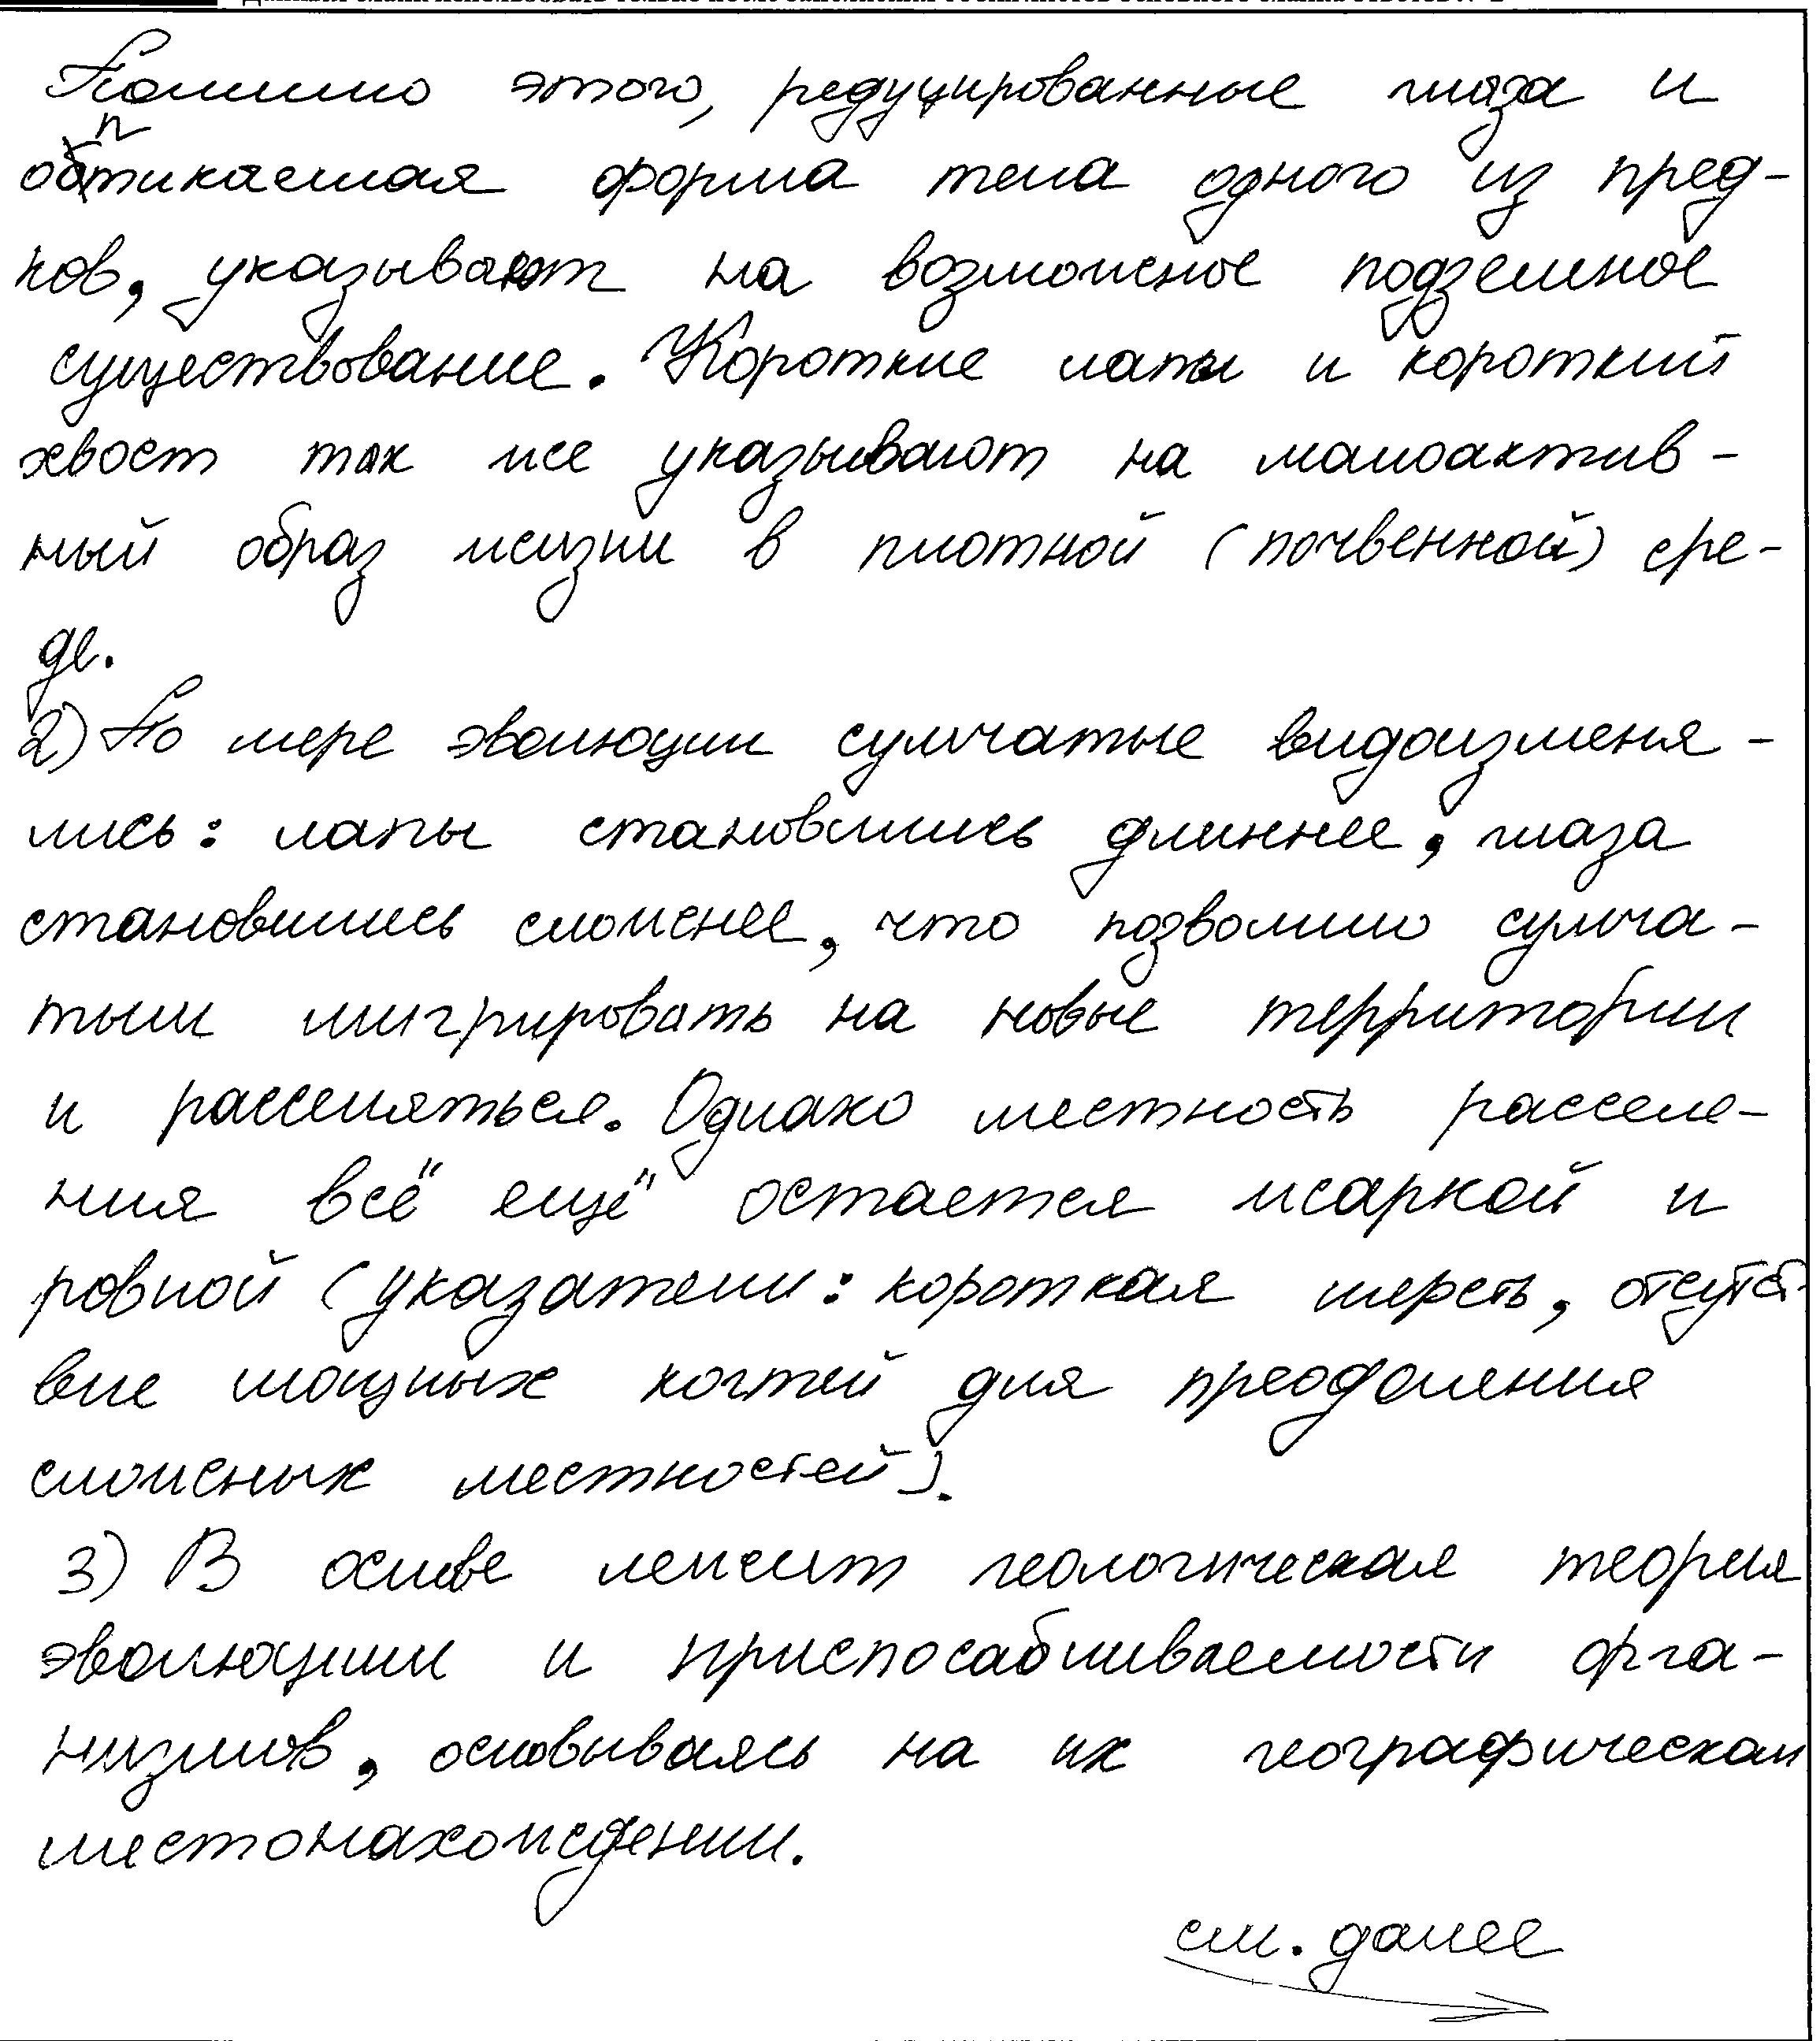 Помимо этого, редуцированные глаза и
оптикаемая форма тела одного из пред-
ков, указывают на возможное подземное
существование. Короткие лапы и короткий
хвост так же указывают на малоактив-
ный образ жизни в плотной (почвенной) сре-
де.
2) По мере эволюции сумчатые видоизменя-
лись: лапы становились длиннее, глаза
становились сложнее, что позволило сумча-
тым мигрировать на новые территории
и расселяться. Однако местность расселе-
ния всё ещё остается жаркой и
ровной (указатели: короткая шерсть, отсутст-
вие мощных когтей для преодоления
сложных местностей).
3) В основе лежит геологическая теория
эволюции и приспосабливаемости орга-
низмов, основываясь на их географическом
местонахождении.
см. далее